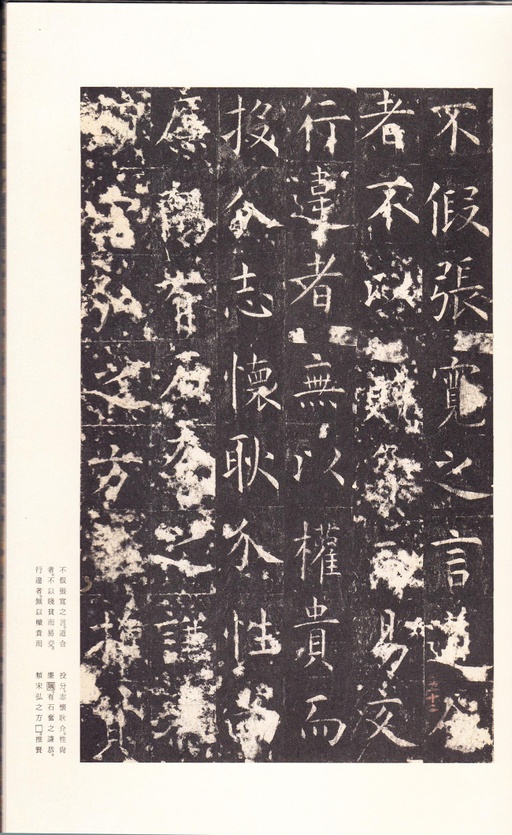 不假張寬之言道合
者不以賤貧而易交
行違者無以權貴而
投分志懷耿介性尚
廉 有石奮之謹
宋弘之方 推賢
不假張寬之言。道合
者。不以賤貧而易交。
行違者。無以權貴而
投分。志懷耿介。性尚
廉 。有石奮之謹恭。
類宋弘之方□。推賢